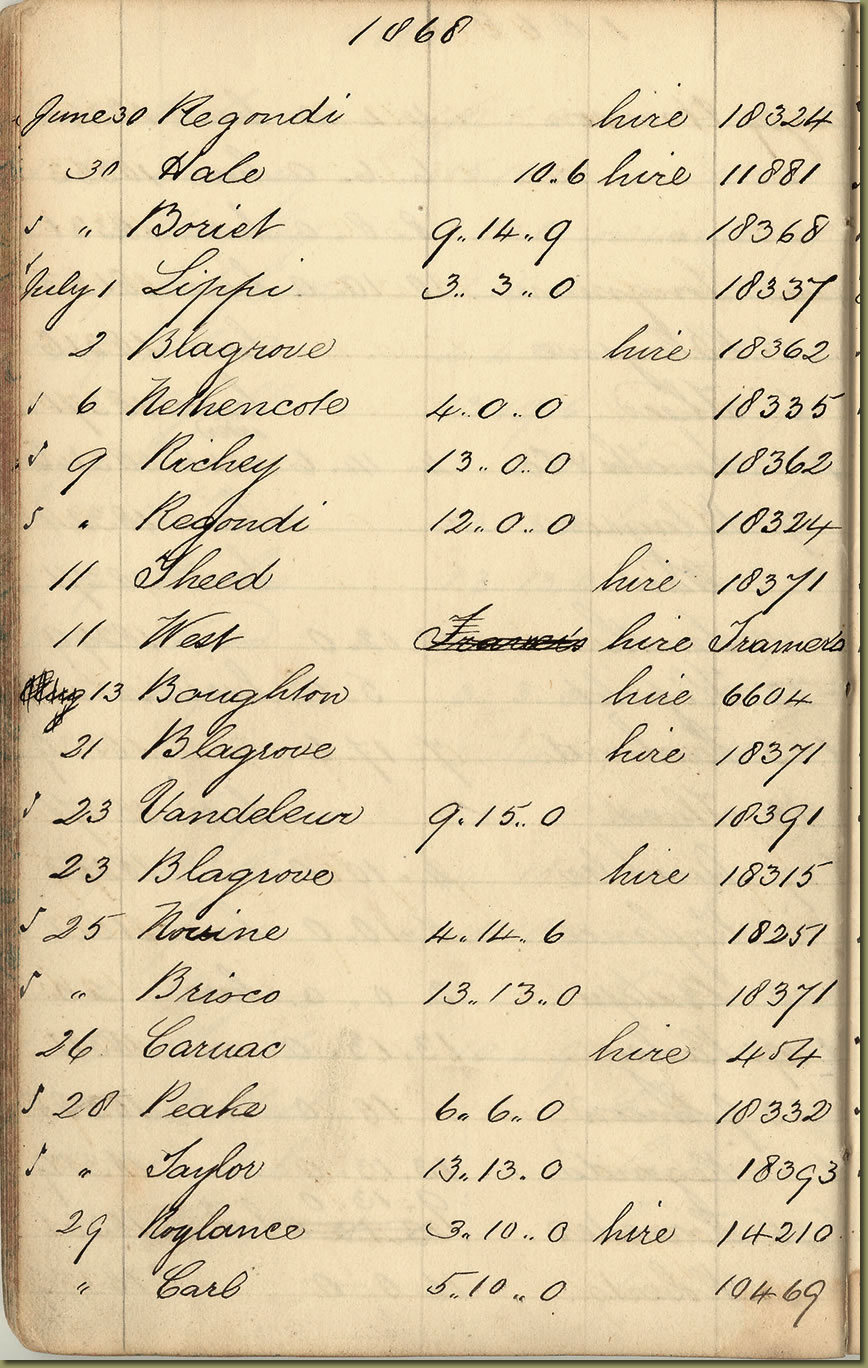 1868
June 30 Regondi hire 18324
30 Hale 10..6 hire 11881
s „ Boriet 9..14..9 18368
s July 1 Lippi 3.. 3..0 18337
2 Blagrove hire 18362
s 6 Nethencote 4..0..0 18335
s 9 Richey 13..0..0 18362
s „ Regondi 12..0..0 18324
11 Theed hire 18371
11 West hire
13 Boughton hire 6604
21 Blagrove hire 18371
s 23 Vandeleur 9.15..0 18391
23 Blagrove hire 18315
s 25 4..14..6 18251
s „ Brisco 13..13..0 18371
26 Carnac hire 454
s 28 Peake 6..6..0 18332
s „ Taylor 13..13.0 18393
29 Roylance 3..10..0 hire 14210
„ Carb 5..10..0 10469